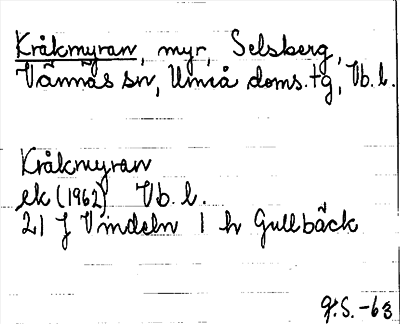 Kråkmyran, myr, Selsberg,
Vännäs sn, Umeå doms.tg, Vb. l.
Kråkmyran
ek (1962) Vb. l.
21 J Vindeln 1 h Gullbäck
G.S. -63